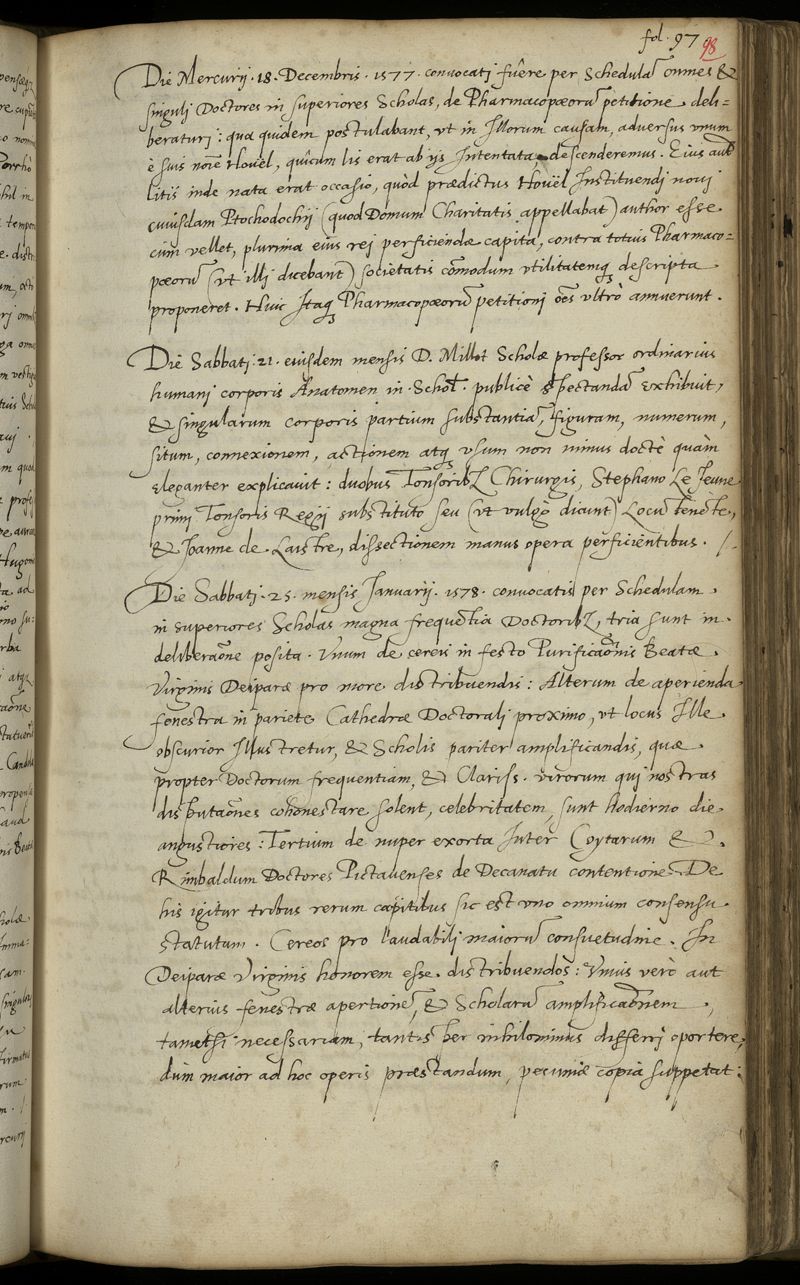 fol. 97 98
Die Mercurij .18. Decembris .1577. convocati fûere per Schedulā omnes &
singuli Doctores in superiores Scholas, de Pharmacopæorū petitione deli=
beraturi: qua quidem postulabant, vt in Illorum causam, adversus vnum
è suis noīe Hovël, quicum lis erat ab ijs Intentata descenderemus. Eius autē
litis inde nata erat occasio, quòd prædictus Hovël Instituendi novi
cuiusdam Ptochodochij (quod Domum Charitatis appellabat) author esse
cum vellet, plurima eius rei perficiendæ capita, contra totius Pharmaco=
pæorū (vt illi dicebant) societatis cōmodum vtilitatemq descripta
proponeret. Huic Itaq Pharmacopæorū petitioni oēs vltrò annuerunt.
Die Sabbati .21. eiusdem mensis D. Millot Scholæ professor ordinarius
humani corporis Anatomen in Schol. publicè spectandā exhibuit,
& singularum corporis partium substantiā, figuram, numerum,
situm, connexionem, actionem atq vsum non minus doctè quàm
eleganter explicavit: duobus Tonsorib Chirurgis, Stephano Le Jeune
primi Tonsoris Regij substituto seu (vt vulgò dicunt) Locū tenēte,
& Joanne de Laistre, dissectionem manus opera perficientibus.
Die Sabbati .25. mensis Januarij .1578. convocatis per Schedulam
in superiores Scholas magna frequētia Doctorib, tria sunt in
deliberaōne posita. Vnum de cereis in festo Purificaōnis Beatæ
Virginis Deiparæ pro more distribuendis: Alterum de aperienda
fenestra in pariete Cathedræ Doctorali proximo, vt locus Ille
obscurior Illustretur, & Scholis pariter amplificandis, quæ
propter Doctorum frequentiam, & Clariss. virorum qui nostras
disputaōnes cohonestare solent, celebritatem, sunt hodierno die
angustiores: Tertium de nuper exorta Inter Coytarum &
Rimbaldum Doctores Pictavenses de Decanatu contentione. De
his igitur tribus rerum capitibus sic est vno omnium consensu
statutum. Cereos pro laudabili maiorū consuetudine In
Deiparæ Virginis honorem esse distribuendos: Vnius verò aut
alterius fenestræ apertionē, & Scholarū amplificaōnem,
tametsi necessariam, tantisper nihilominus differri oportere,
dum maior ad hoc operis præstandum, pecuniæ copia suppetat: